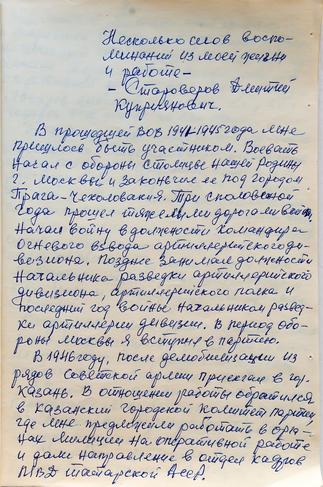 Несколько слов воспо-
минаний из моей жизни
и работе -
- Староверов Дмитрий
Куприянович.
В прошедшей ВОВ 1941-1945 года мне
пришлось быть участником. Воевать
начал с обороны столицы нашей Родины
г. Москвы и закончил ее под городом
Прага - Чехословакия. Три с половиной
года прошел тяжелыми дорогами войны,
начал войну в должности командира
огневого взвода артиллерийского ди-
визиона. Позднее занимал должности
начальника разведки артиллерийского
дивизиона, артиллерийского полка и
последний год войны начальником развед-
ки артиллерии дивизии. В период обо-
роны Москвы я вступил в партию.
В 1946 году, после демобилизации из
рядов Советской армии приехал в гор.
Казань. В отношении работы обратился
в Казанский городской комитет партии,
где мне предложили работать в орга-
нах милиции на оперативной работе
и дали направление в отдел кадров
МВД Татарской АССР.